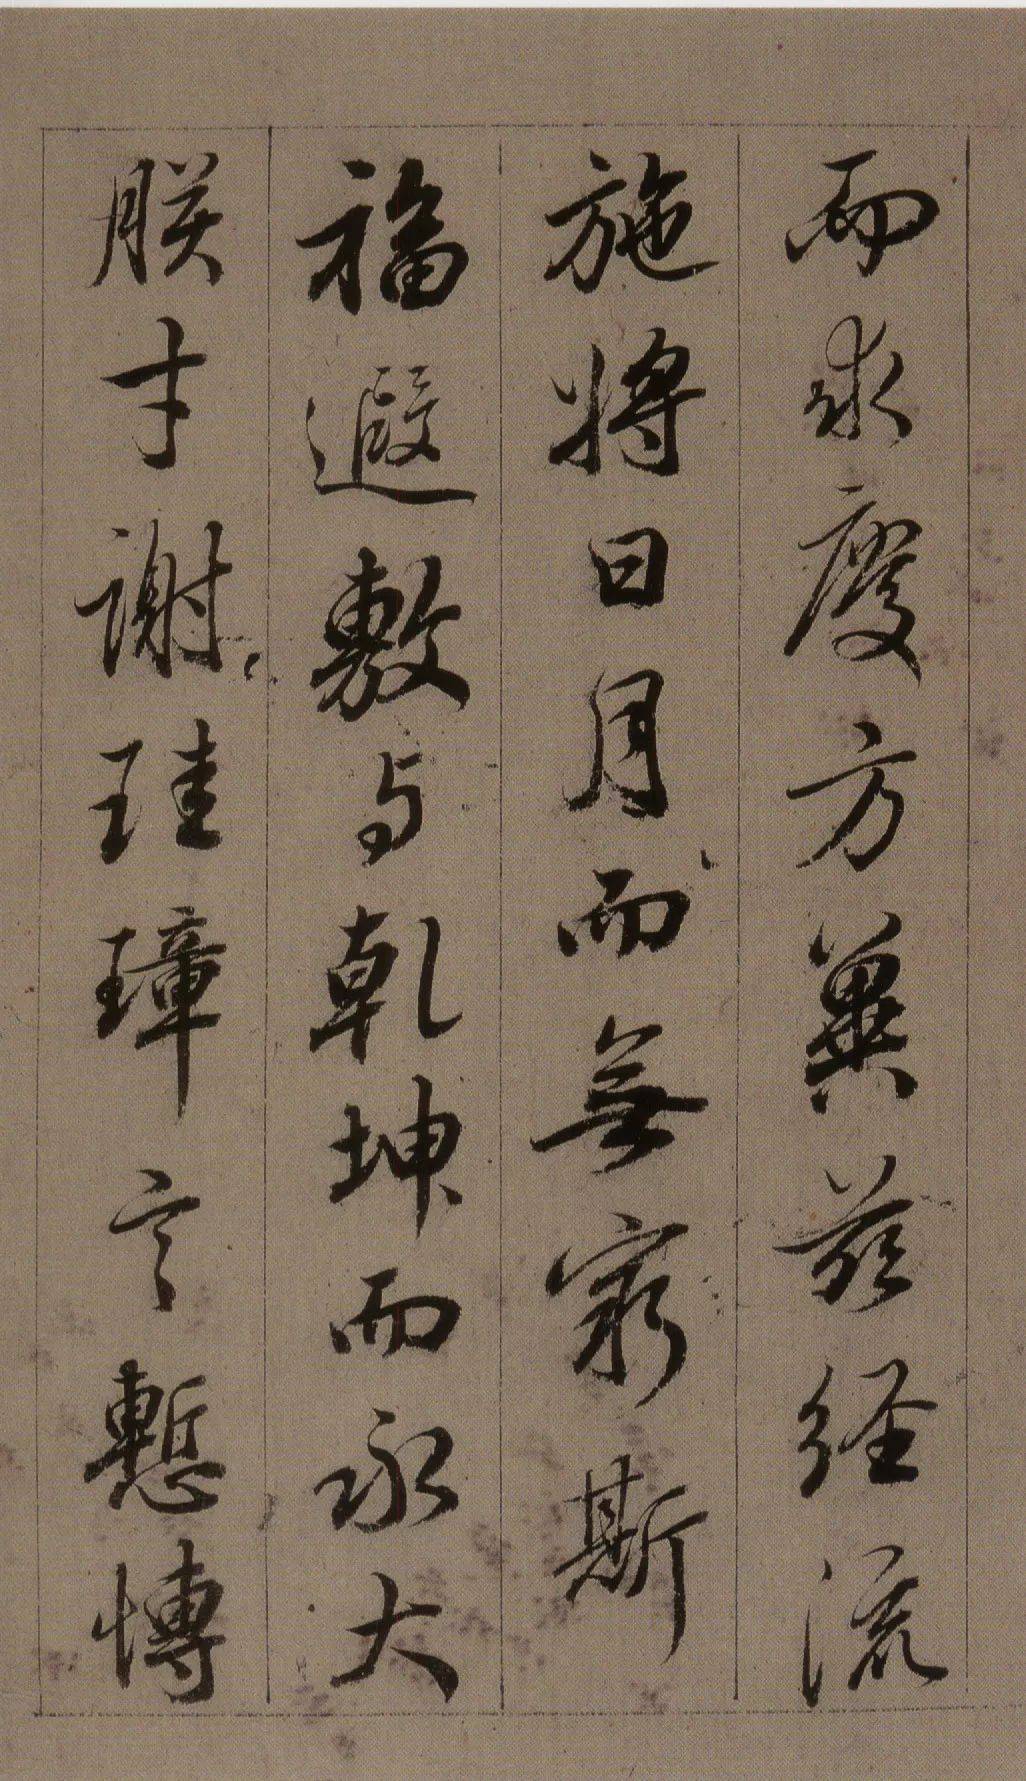 而求慶方冀茲經流
施將日月而無窮斯
福遐敷与乾坤而永大
朕才謝珪璋言慙博